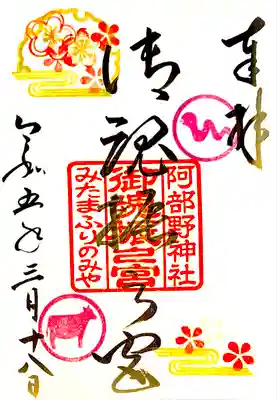 奉拝
阿部野神社
御魂振之宮
みたまふりのみや
令和五年三月十八日